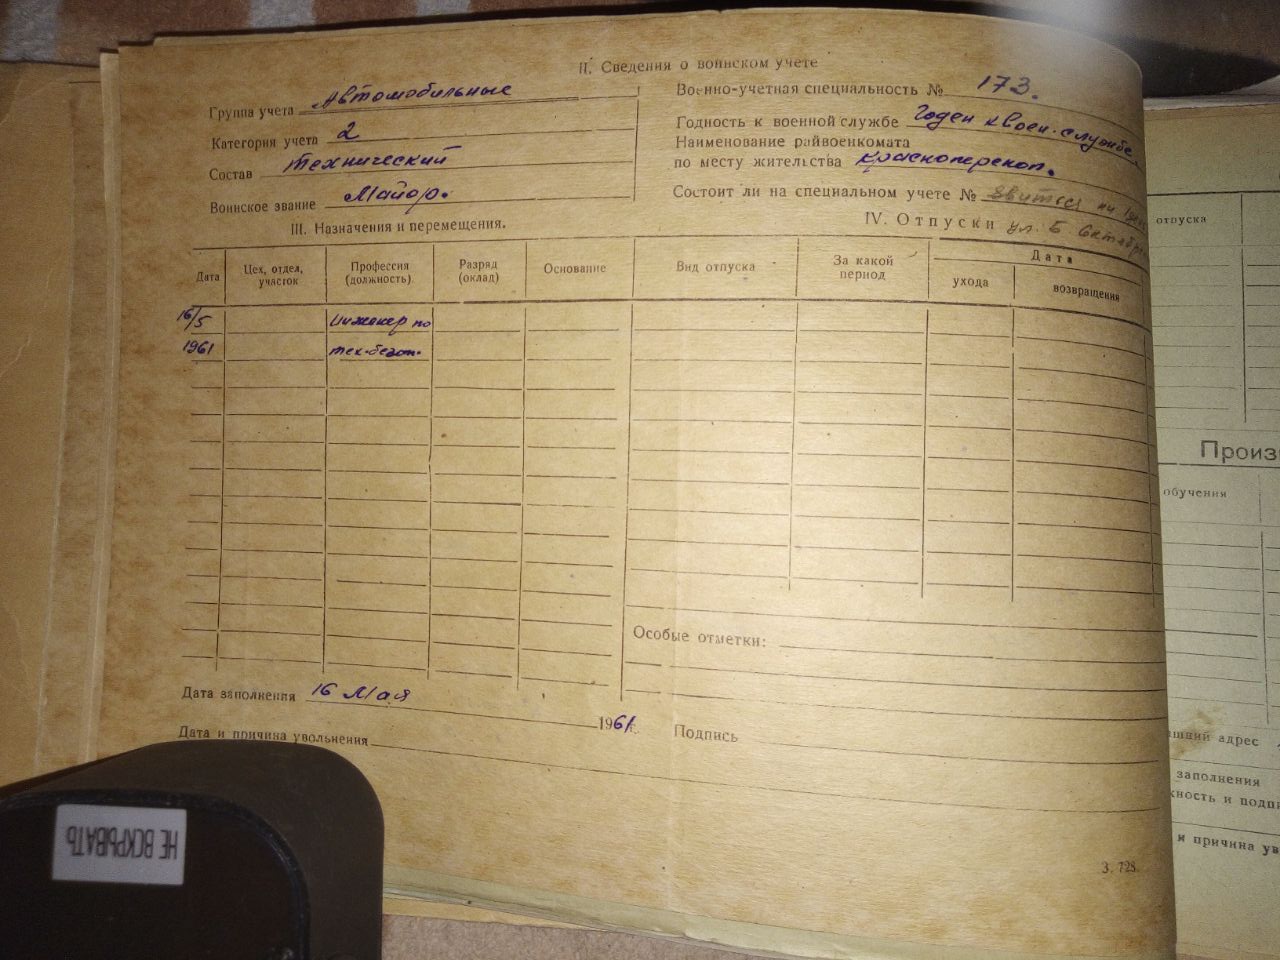 II. Сведения о воинском учете
Группа учета Автомобильные
Категория учета 2
Состав технический
Воинское звание Майор.
Военно-учетная специальность № 173.
Годность к военной службе Годен к воен. службе.
Наименование райвоенкомата
по месту жительства Красноперекоп.
Состоит ли на специальном учете №
III. Назначения и перемещения.
IV. Отпуски ул. Б Октябр
Дата
Цех, отдел, участок
Профессия (должность)
Разряд (оклад)
Основание
Вид отпуска
За какой период
Дата
ухода
возвращения
16/5 инженер по
1961 тех. безоп.
Особые отметки:
Дата заполнения 16 Мая
1961г.
Подпись
Дата и причина увольнения
З. 728.
отпуска
Произ
обучения
адрес
заполнения
и подпи
и причина ув
НЕ ВСКРЫВАТЬ